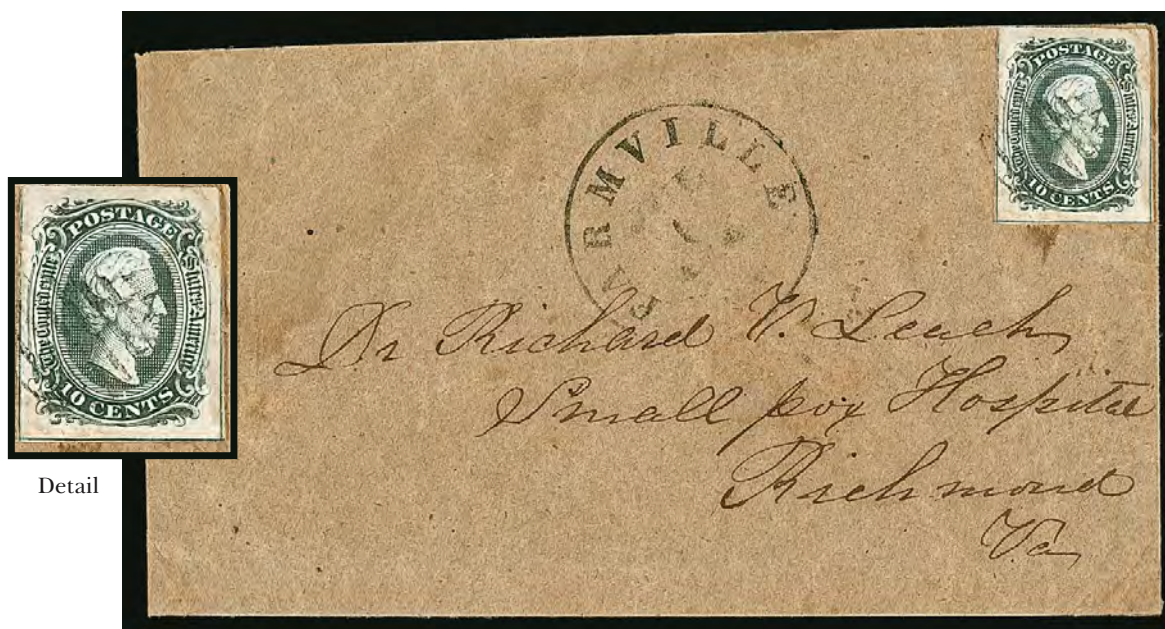 POSTAGE
The Confederate States of America
10 CENTS
FARMVILLE
POSTAGE
The Confederate States of America
10 CENTS
Detail
Dr Richard V. Leach
Small pox Hospital
Richmond
Va